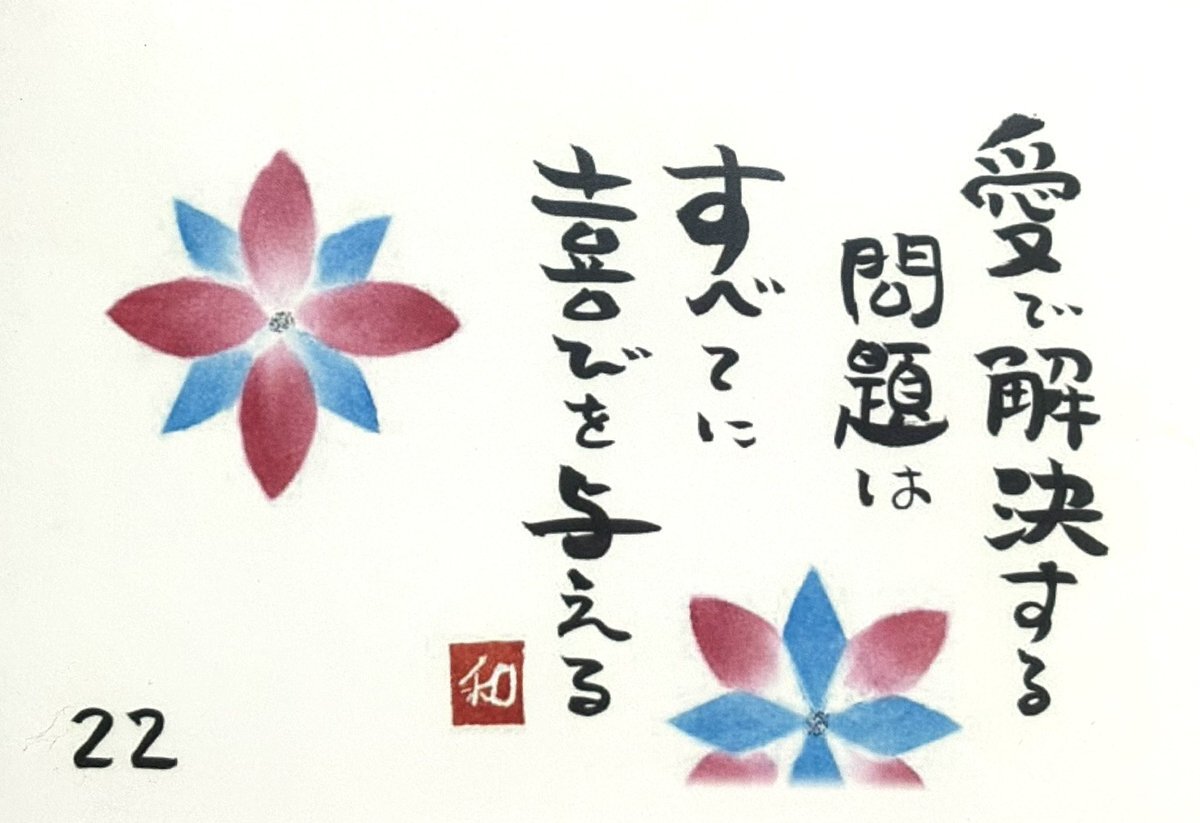 愛で解決する
問題は
すべてに
喜びを与える
和
22